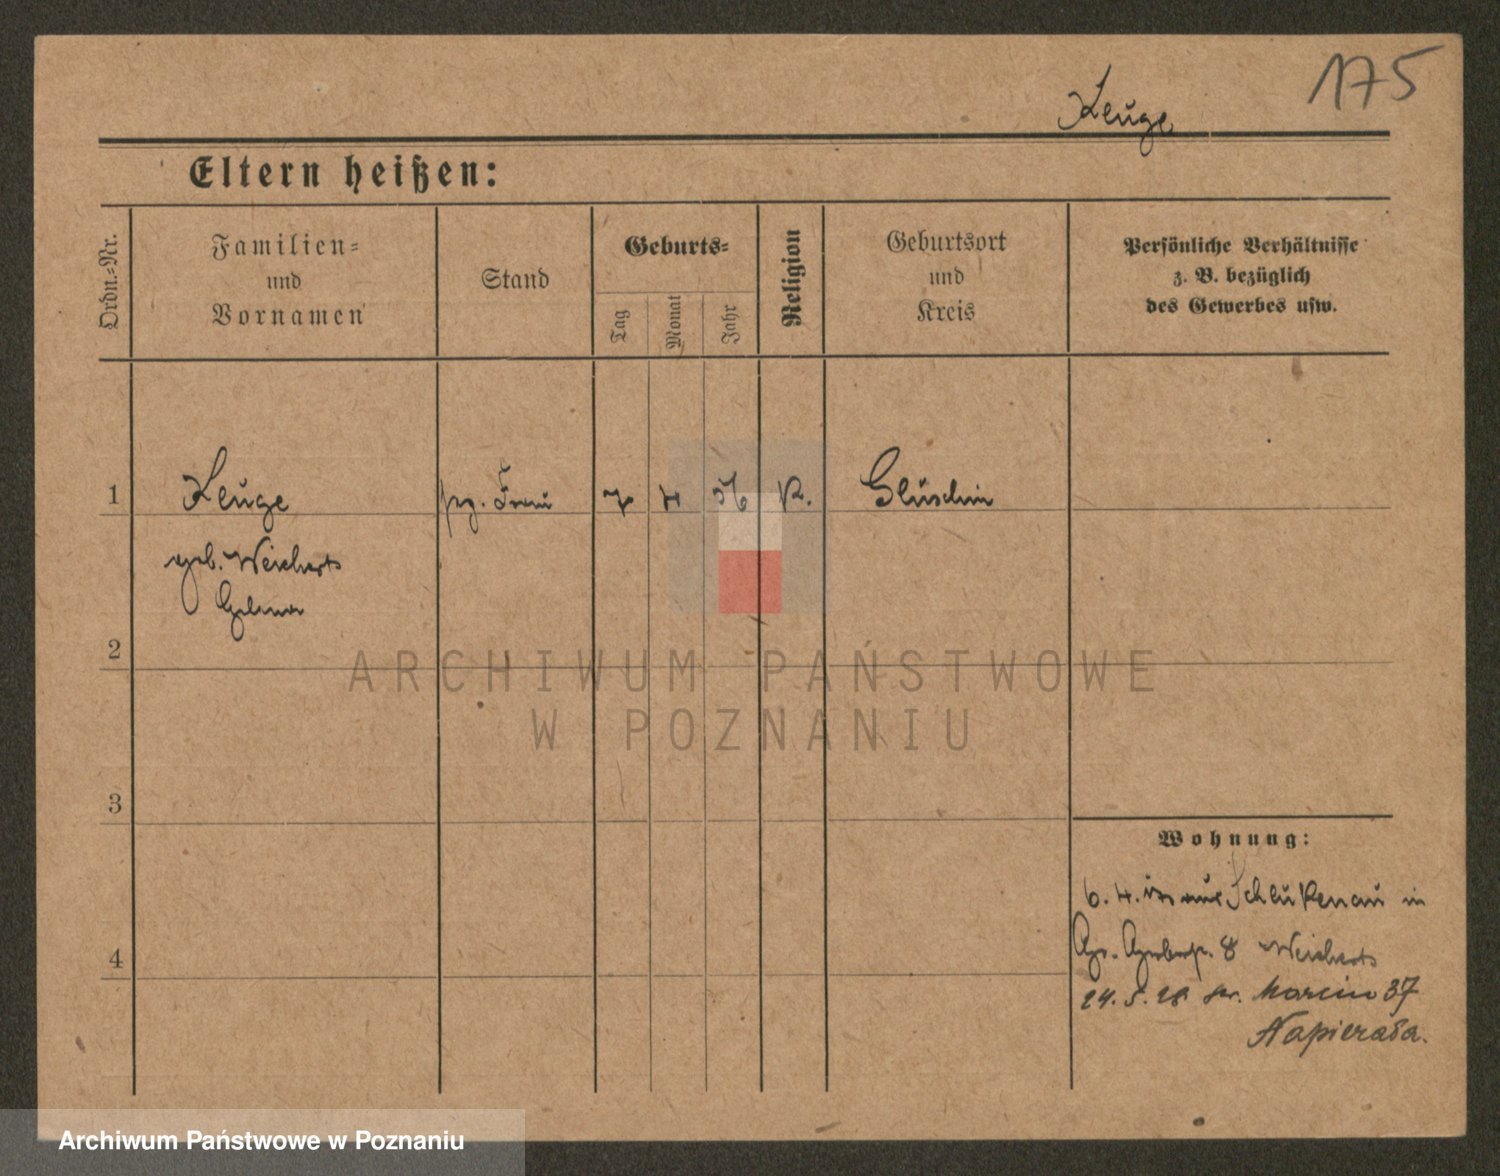 175
Keuge
Eltern heißen:
Ordn.=Nr.
Familien=
und
Vornamen
Stand
Geburts=
Tag
Monat
Jahr
Religion
Geburtsort
und
Kreis
Persönliche Verhältnisse
z. B. bezüglich
des Gewerbes usw.
1
Keuge
geb. Weicherts
Frau
7
56
K.
Gluschin
2
3
4
Wohnung:
6. 4. aus in
8 Weicherts
24. 5. Marcin 37
Napierała.
ARCHIWUM PAŃSTWOWE
W POZNANIU
Archiwum Państwowe w Poznaniu